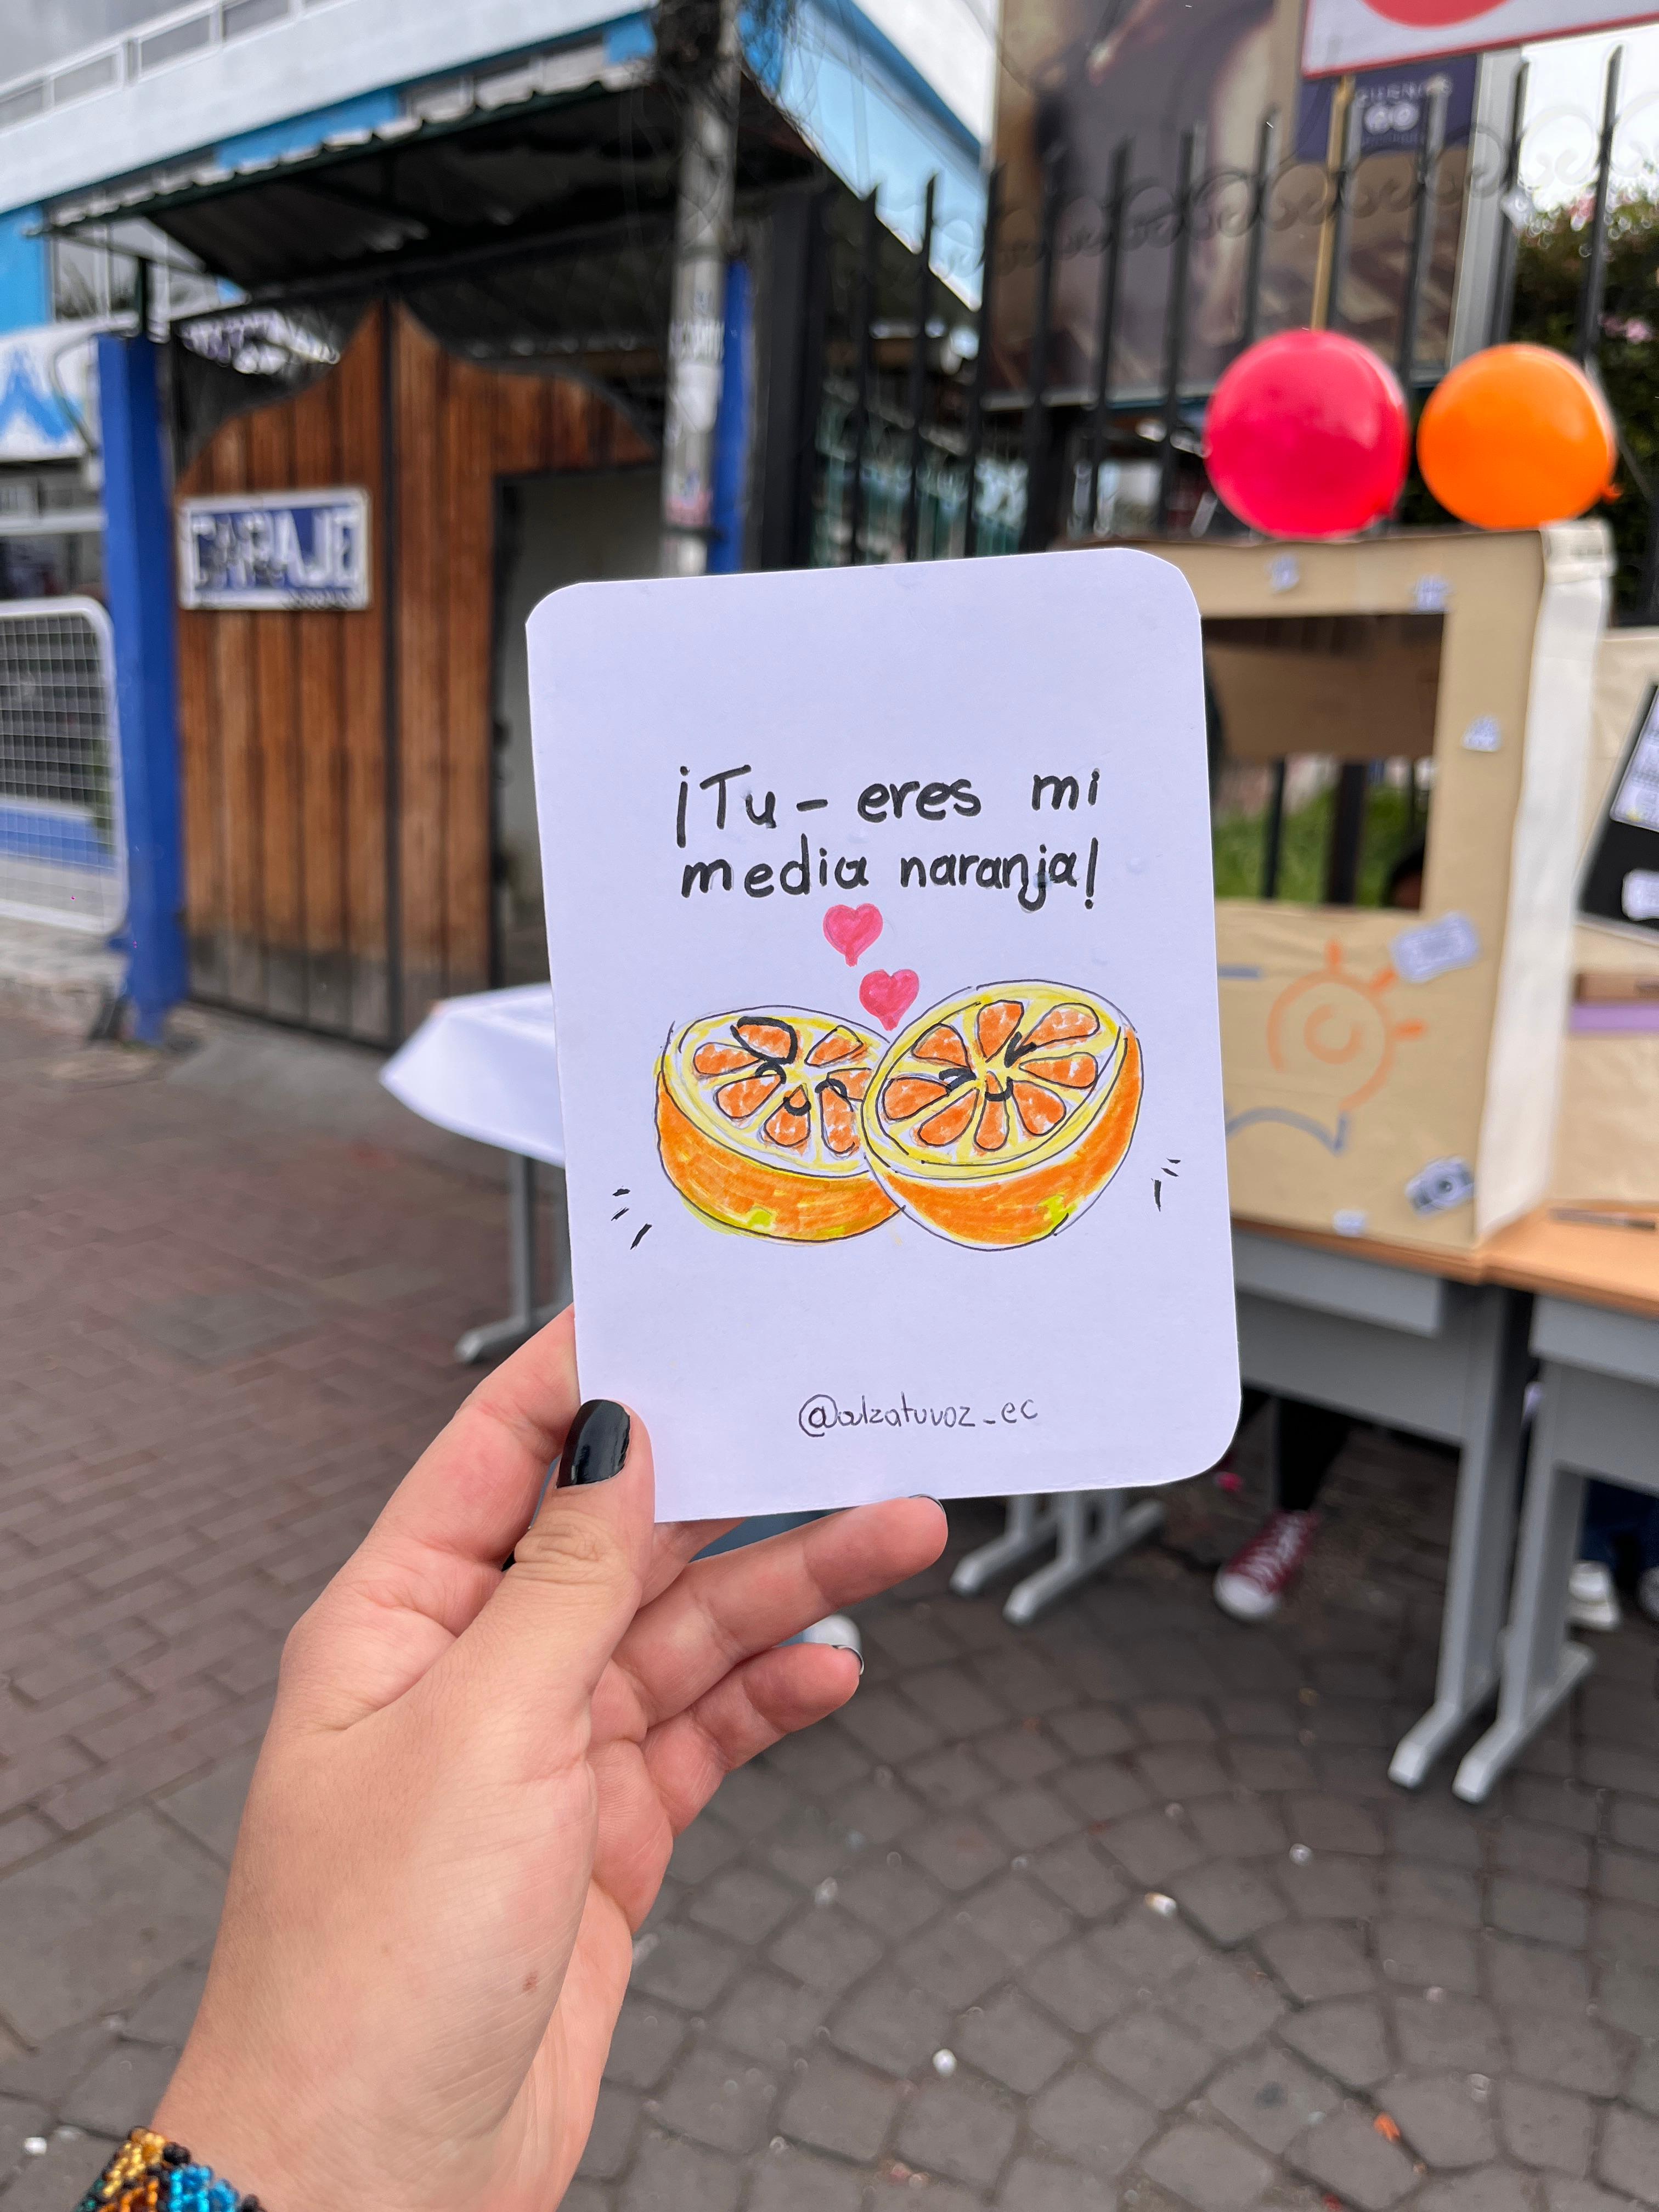 GARAJE
¡Tu- eres mi
media naranja!
@alzatuvoz_ec